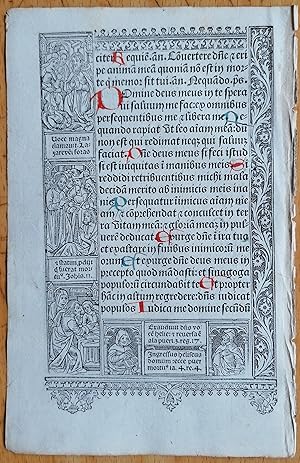 citer Requiē. an̄. Cōvertere dn̄e & eri
pe animā meā quoniā nō est in mor
te q̄ memor sit tui. an̄. Nequādo. ps.
Domine deus meus in te spera
vi saluum me fac ex omnibus
persequentibus me & libera me
quando rapiat vt leo aīam meā: dū
non est qui redimat neq̄ qui saluū
faciat. Dn̄e deus meus si feci istud
si est iniquitas ī manibus meis. Si
reddidi retribuentibus michi mala
decidā merito ab inimicis meis ina
nis. Persequatur īimicus aīam me
am & cōprehendat & conculcet in ter
ra vitam meā: & gloriā meā; in pul
verē deducat. Exurge dn̄e ī ira tua
et exaltare in finibus inimicorū meo
rum. Et exurge dn̄e deus meus in
precepto quod mādasti: & sinagoga
populorū circundabit te. Et propter
hanc in altum regredere: dn̄s iudicat
populos. Iudica me domine secūdū
Voce magna
clamavit. La
zare veni foras
Statim, pdiit
q̄ fuerat mor
tu⁹. Johīs. 11.
Exaudivit dn̄s vo
cē helie: & reversa ē
aīa pueri. 3. reg. 17.
Ingressus heliseus
domum: ecce puer
mortu⁹ īa. 4. re. 4.